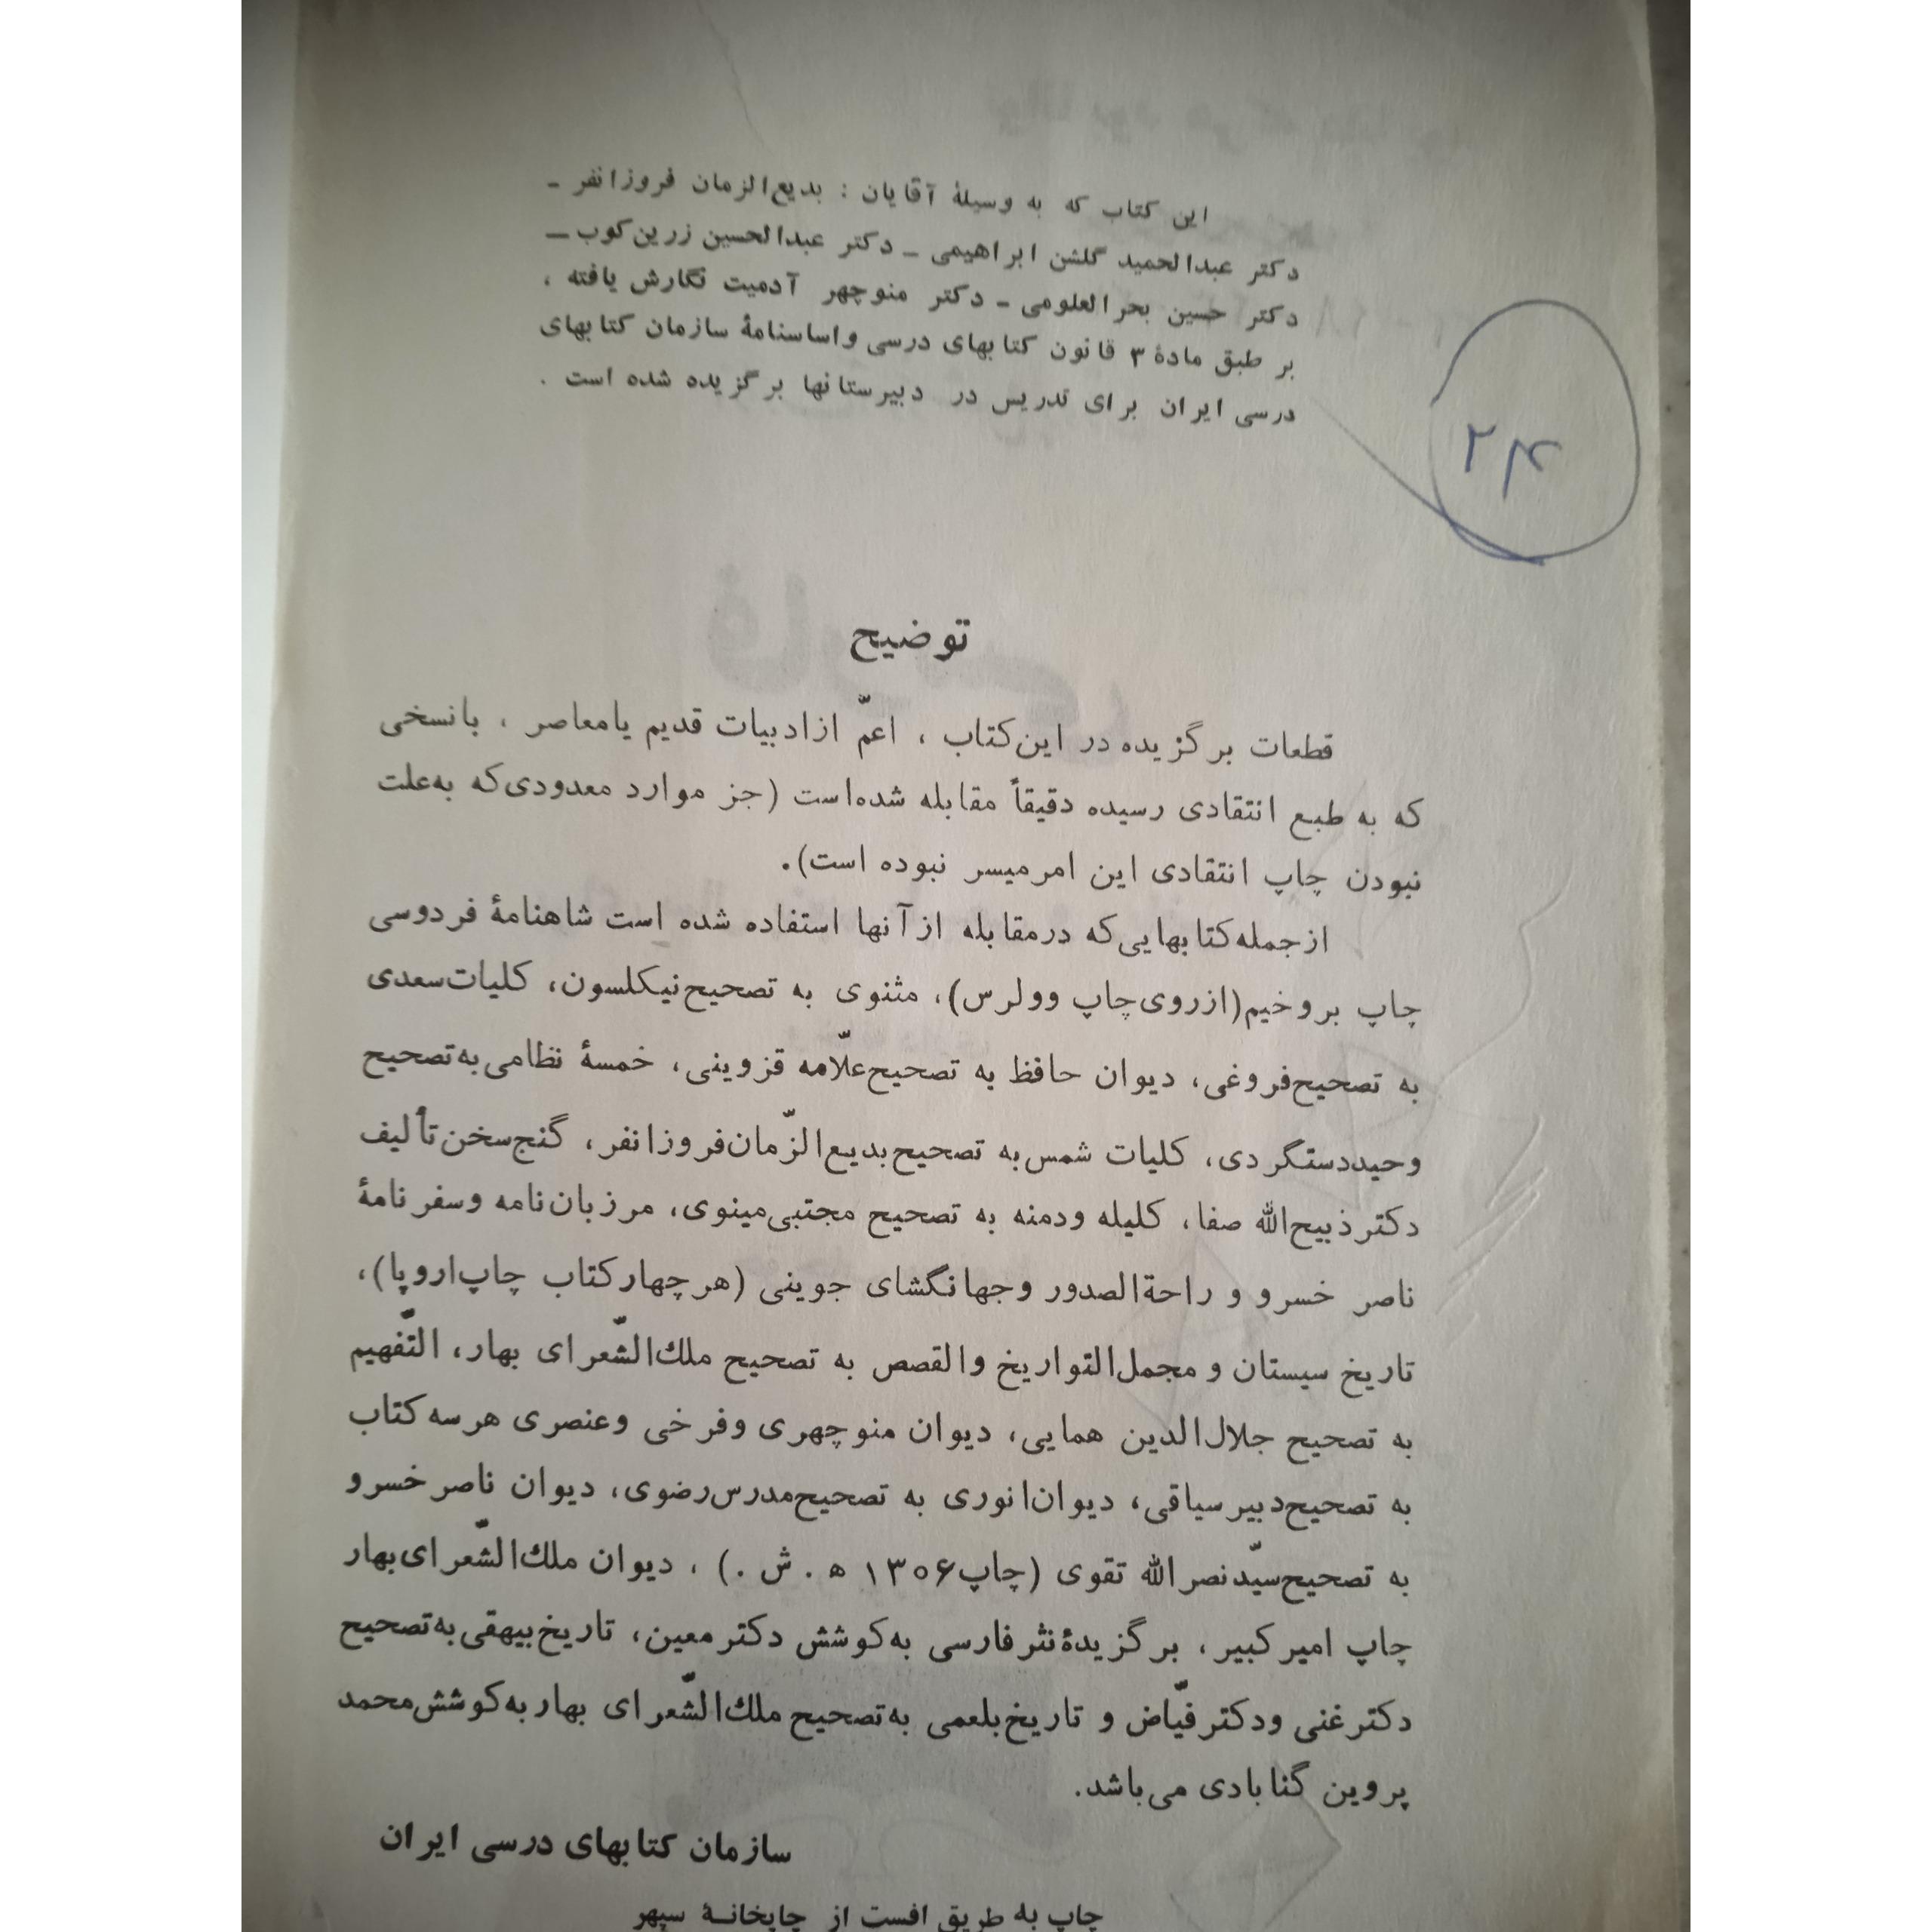 این کتاب که به وسیلهٔ آقایان : بدیع‌الزمان فروزانفر ـ
دکتر عبدالحمید گلشن ابراهیمی ـ دکتر عبدالحسین زرین‌کوب ـ
دکتر حسین بحرالعلومی ـ دکتر منوچهر آدمیت نگارش یافته ،
بر طبق مادهٔ ۳ قانون کتابهای درسی و اساسنامهٔ سازمان کتابهای
درسی ایران برای تدریس در دبیرستانها برگزیده شده است .
۲۴
توضیح
قطعات برگزیده در این‌کتاب ، اعمّ از ادبیات قدیم یا معاصر ، با نسخی
که به طبع انتقادی رسیده دقیقاً مقابله شده‌است (جز موارد معدودی‌که به‌علت
نبودن چاپ انتقادی این امر میسر نبوده است).
از جمله‌کتابهایی‌که در مقابله از آنها استفاده شده است شاهنامهٔ فردوسی
چاپ بروخیم (از روی‌چاپ وولرس)، مثنوی به تصحیح‌نیکلسون، کلیات‌سعدی
به تصحیح‌فروغی، دیوان حافظ به تصحیح‌علّامه قزوینی، خمسهٔ نظامی‌به‌تصحیح
وحیددستگردی، کلیات شمس‌به تصحیح‌بدیع‌الزّمان‌فروزانفر، گنج‌سخن‌تألیف
دکترذبیح‌الله صفا، کلیله و دمنه به تصحیح مجتبی‌مینوی، مرزبان‌نامه و سفرنامهٔ
ناصر خسرو و راحةالصدور و جهانگشای جوینی (هر چهارکتاب چاپ‌اروپا)،
تاریخ سیستان و مجمل‌التواریخ والقصص به تصحیح ملك‌الشّعرای بهار، التّفهیم
به تصحیح جلال‌الدین همایی، دیوان منوچهری و فرخی و عنصری هر سه کتاب
به تصحیح‌دبیر سیاقی، دیوان‌انوری به تصحیح‌مدرس‌رضوی، دیوان ناصر خسرو
به تصحیح‌سیّدنصرالله تقوی (چاپ ۱۳۰۶ ه . ش .) ، دیوان ملك‌الشّعرای‌بهار
چاپ امیرکبیر، برگزیدهٔ نثر فارسی به‌کوشش دکتر معین، تاریخ‌بیهقی‌به‌تصحیح
دکترغنی و دکتر فیّاض و تاریخ‌بلعمی به‌تصحیح ملك‌الشّعرای بهار به‌کوشش‌محمد
پروین گنابادی می‌باشد.
سازمان کتابهای درسی ایران
چاپ به طریق افست از چاپخانهٔ سپهر